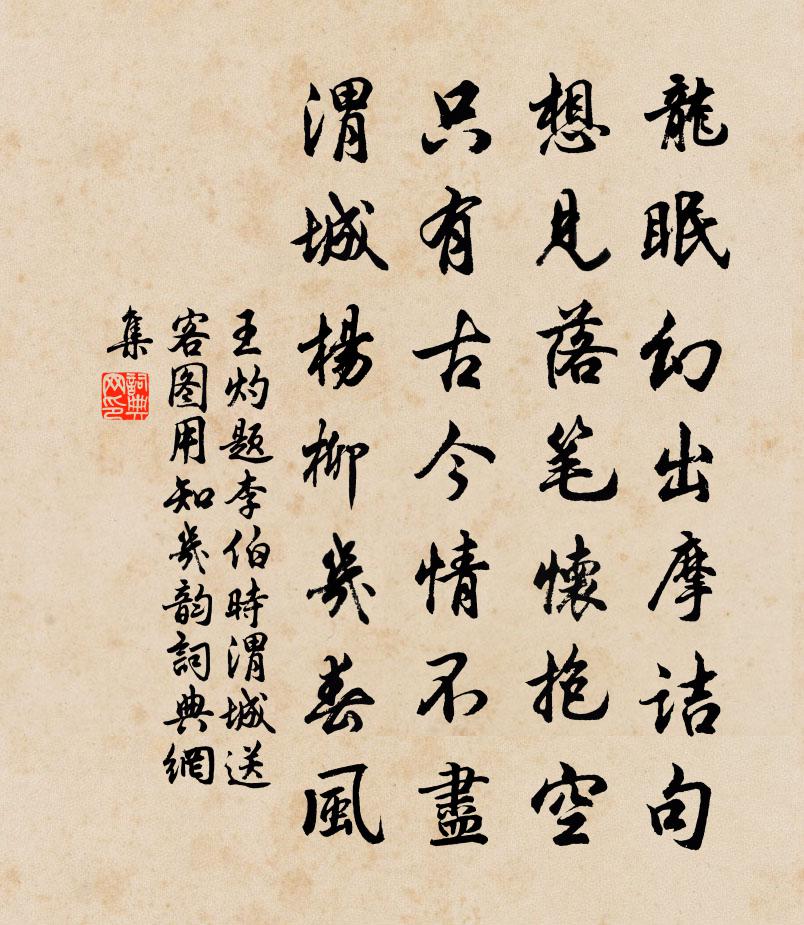 龍眠幻出摩詰句
想見落笔懷抱空
只有古今情不盡
渭城楊柳幾春風
王灼题李伯時渭城送
客图用知幾韵詞典網
集
詞典网印